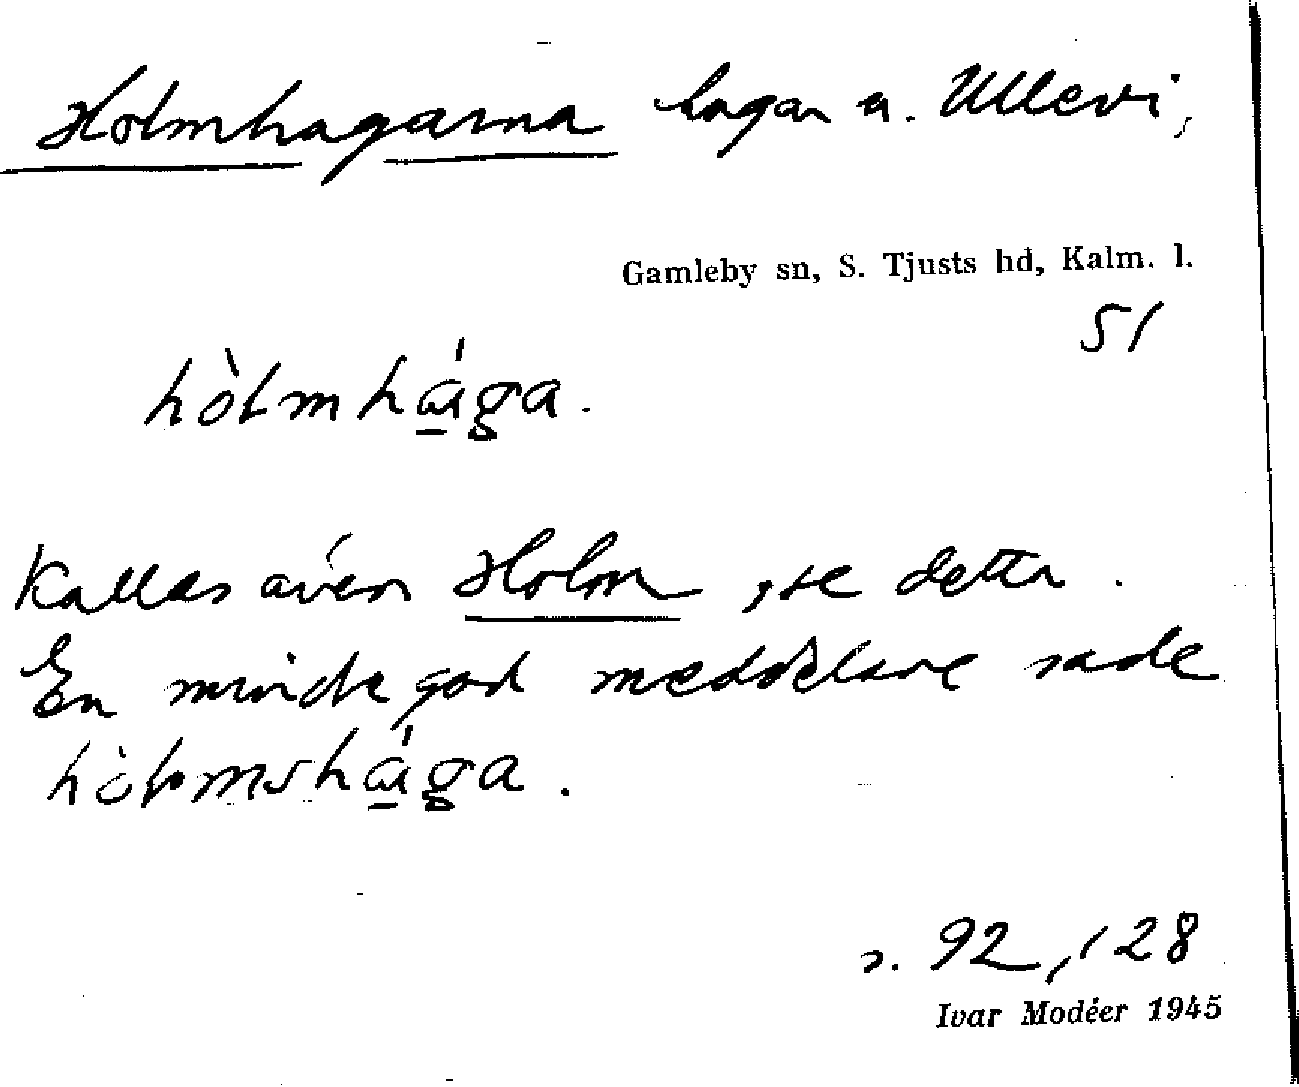 Holmhagarna hagar u. Ullevi,
Gamleby sn, S. Tjusts hd, Kalm. l.
51
hòlmhá̱ga.
Kallas även Holm, se detta.
En mindre god meddelare sade
hòlmshá̱ga.
s. 92, 128
Ivar Modéer 1945